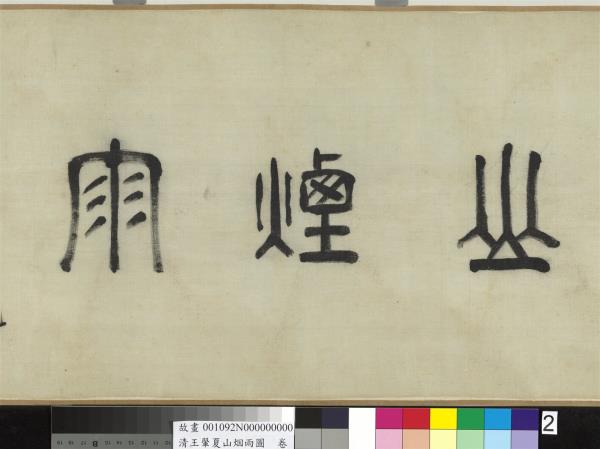 山煙雨
故畫 001092N000000000
清王肇夏山烟雨圖 卷
2
8